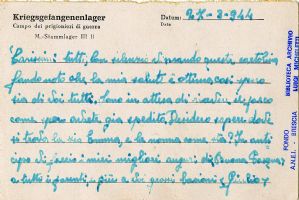 Kriegsgefangenenlager
Campo dei prigionieri di guerra
M.-Stammlager III
Datum: 27-3-944
Date
Carissimi tutti, con silenzio vi mando questa cartolina
che la mia salute è ottima così spero
sia di voi tutti. Sono in attesa di
come pure avete già spedito. Desidero sapere dove
si trova la zia Emma, e la nonna come sta? In anti
cipo vi faccio i miei migliori auguri di Buona Pasqua
a tutti i parenti, e più a voi grossi bacioni
Giulio
FONDO
A.N.E.I. - BRESCIA
BIBLIOTECA ARCHIVIO
LUIGI MICHELETTI